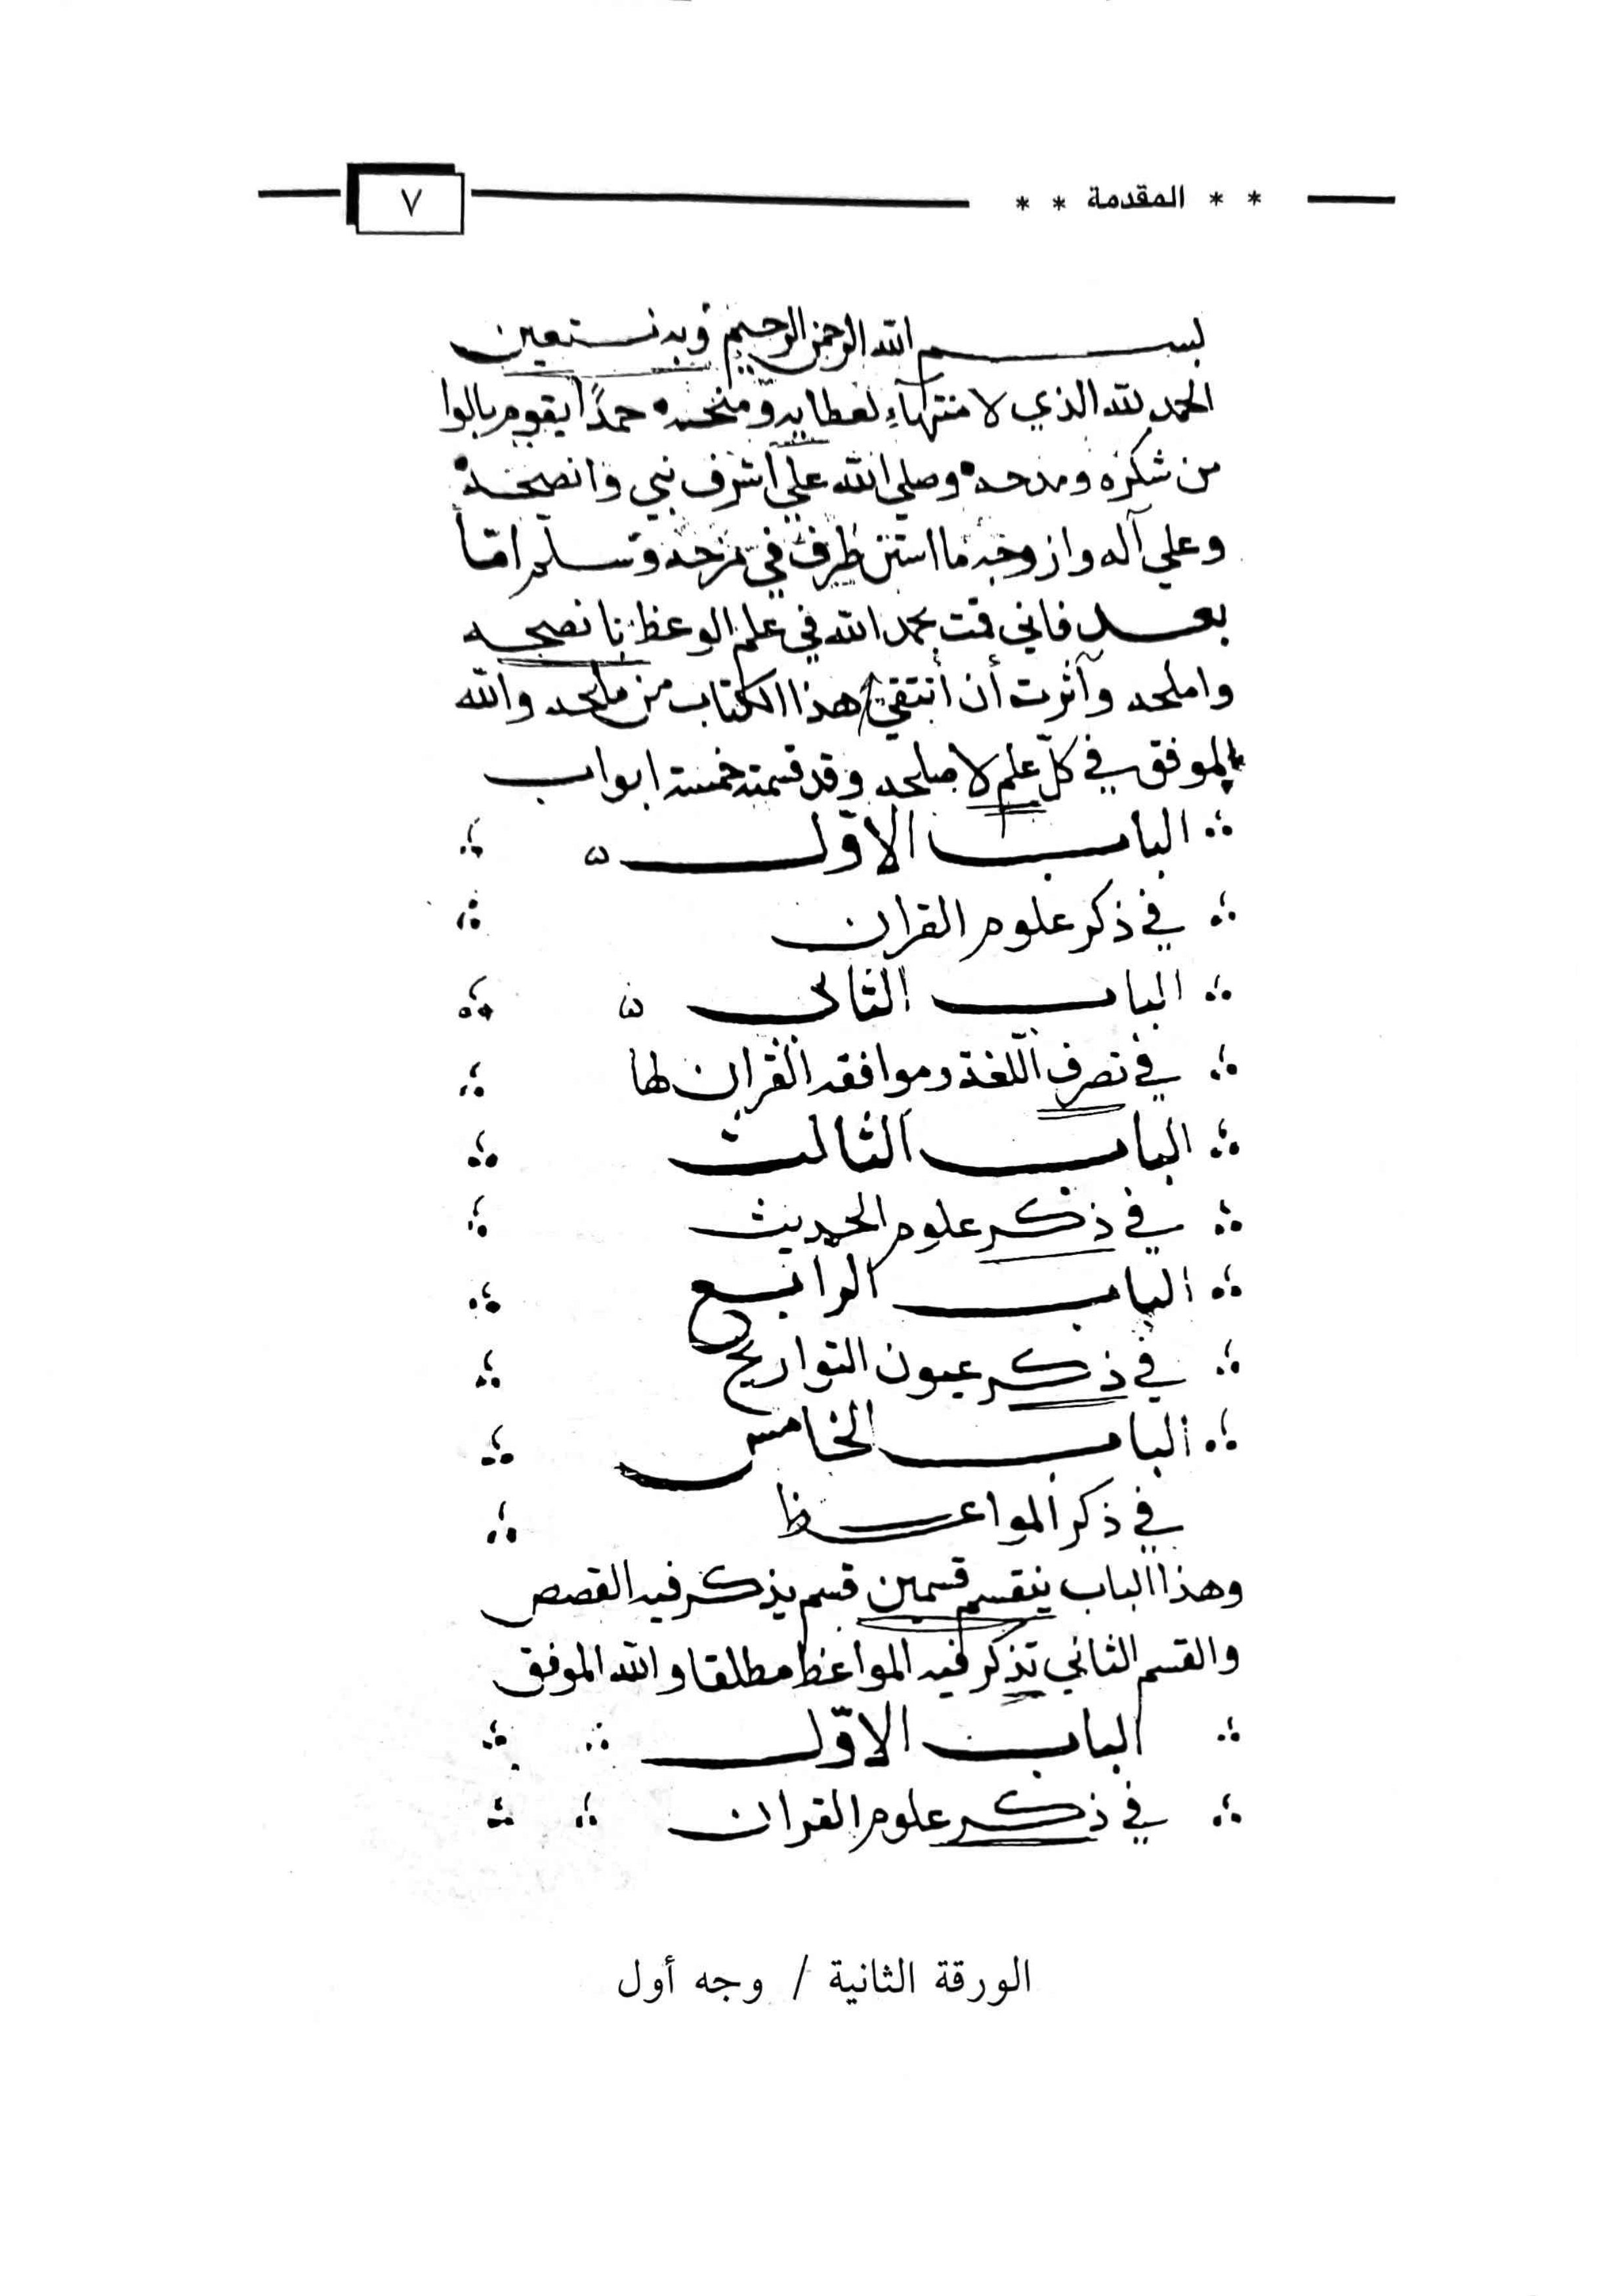 * * المقدمة * *
٧
بسم الله الرحمن الرحيم وبه نستعين
الحمد لله الذي لا منتهاء لعطايه ومنحه حمدًا يقوم بالوا
من شكره ومدحه وصلي الله علي أشرف نبي وانصحه
وعلي آله وازوجه ما استن طرف في مرحه وسلم امّا
بعد فاني قمت بحمد الله في علم الوعظ بانصحه
واملحه وآثرت أن أنتقي هذا الكتاب من ملحه والله
الموفق في كلّ علم لاصلحه وقد قسمته خمسة ابواب
الباب الاوّل
في ذكر علوم القران
الباب الثانى
في تصرف اللّغة وموافقه القران لها
الباب الثالث
في ذكر علوم الحديث
الباب الرابع
في ذكر عيون التواريخ
الباب الخامس
في ذكر المواعظ
وهذا الباب ينقسم قسمين قسم يذكر فيه القصص
والقسم الثاني تذكر فيه المواعظ مطلقا والله الموفق
الباب الاوّل
في ذكر علوم القران
الورقة الثانية / وجه أول